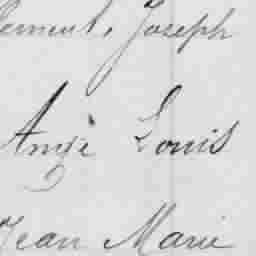 lement, Joseph
Ange Louis
Jean Marie